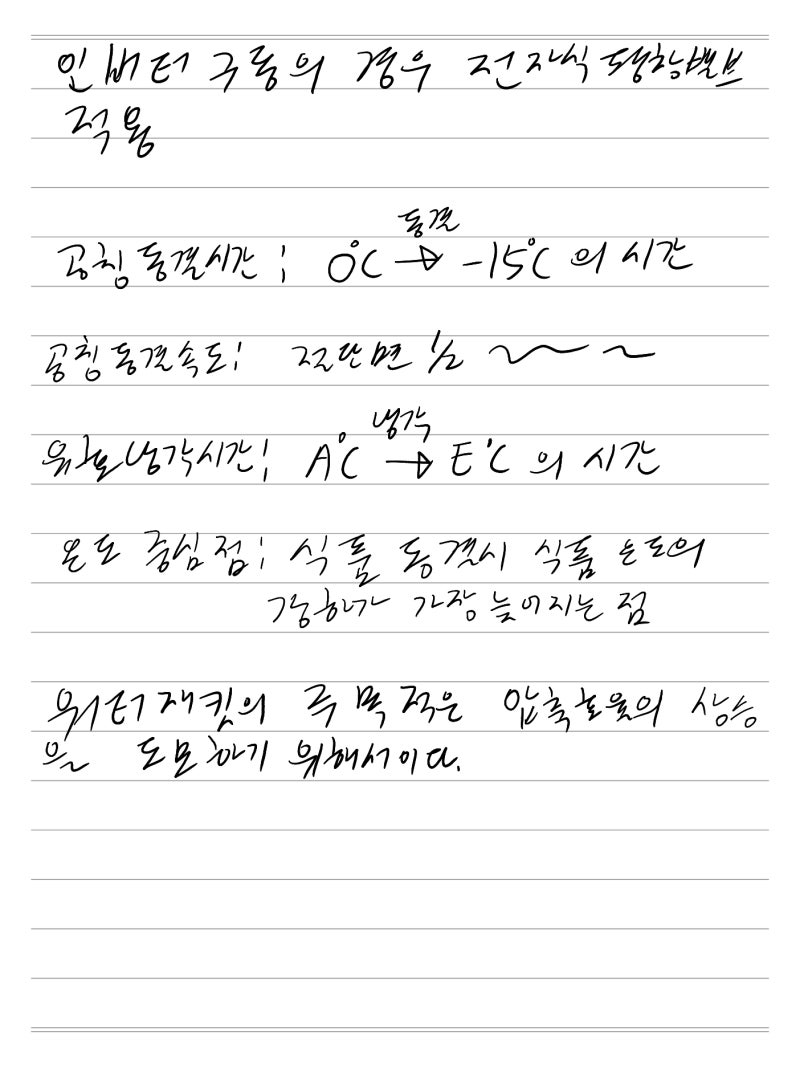 인버터 구동의 경우 전자식 팽창밸브
적용
동결
공칭동결시간; 0°C → -15°C 의 시간
공칭동결속도; 절단면 1/2 ~ ~
냉각
유효냉각시간; A°C → E°C 의 시간
온도 중심점; 식품 동결시 식품 온도의
강하가 가장 늦어지는 점
워터재킷의 주 목적은 압축효율의 상승
을 도모하기 위해서이다.